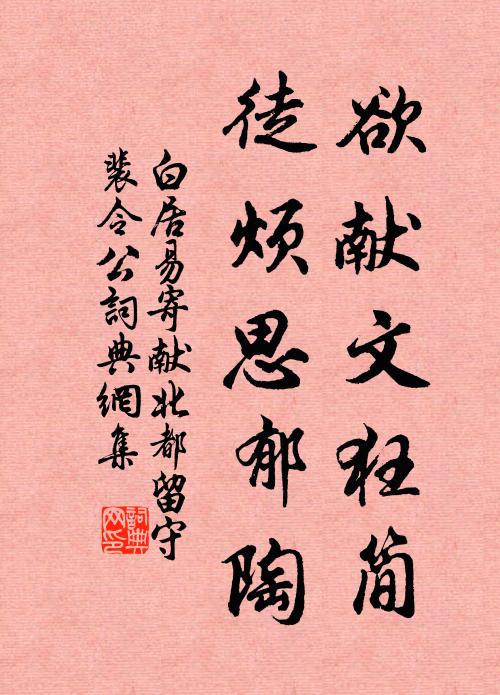 欲献文狂简
徒烦思郁陶
白居易寄献北都留守
裴令公詞典網集
詞典網印